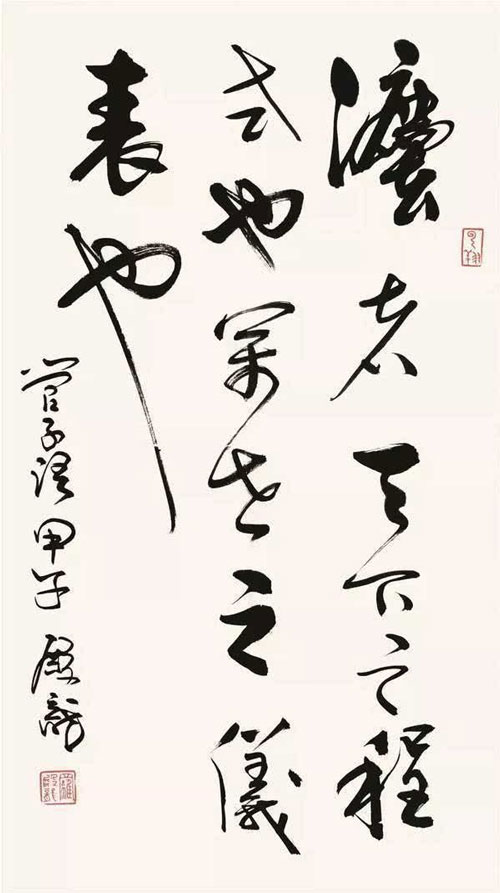 灋者天下之程
式也萬世之儀
表也
管子語甲子殿龍